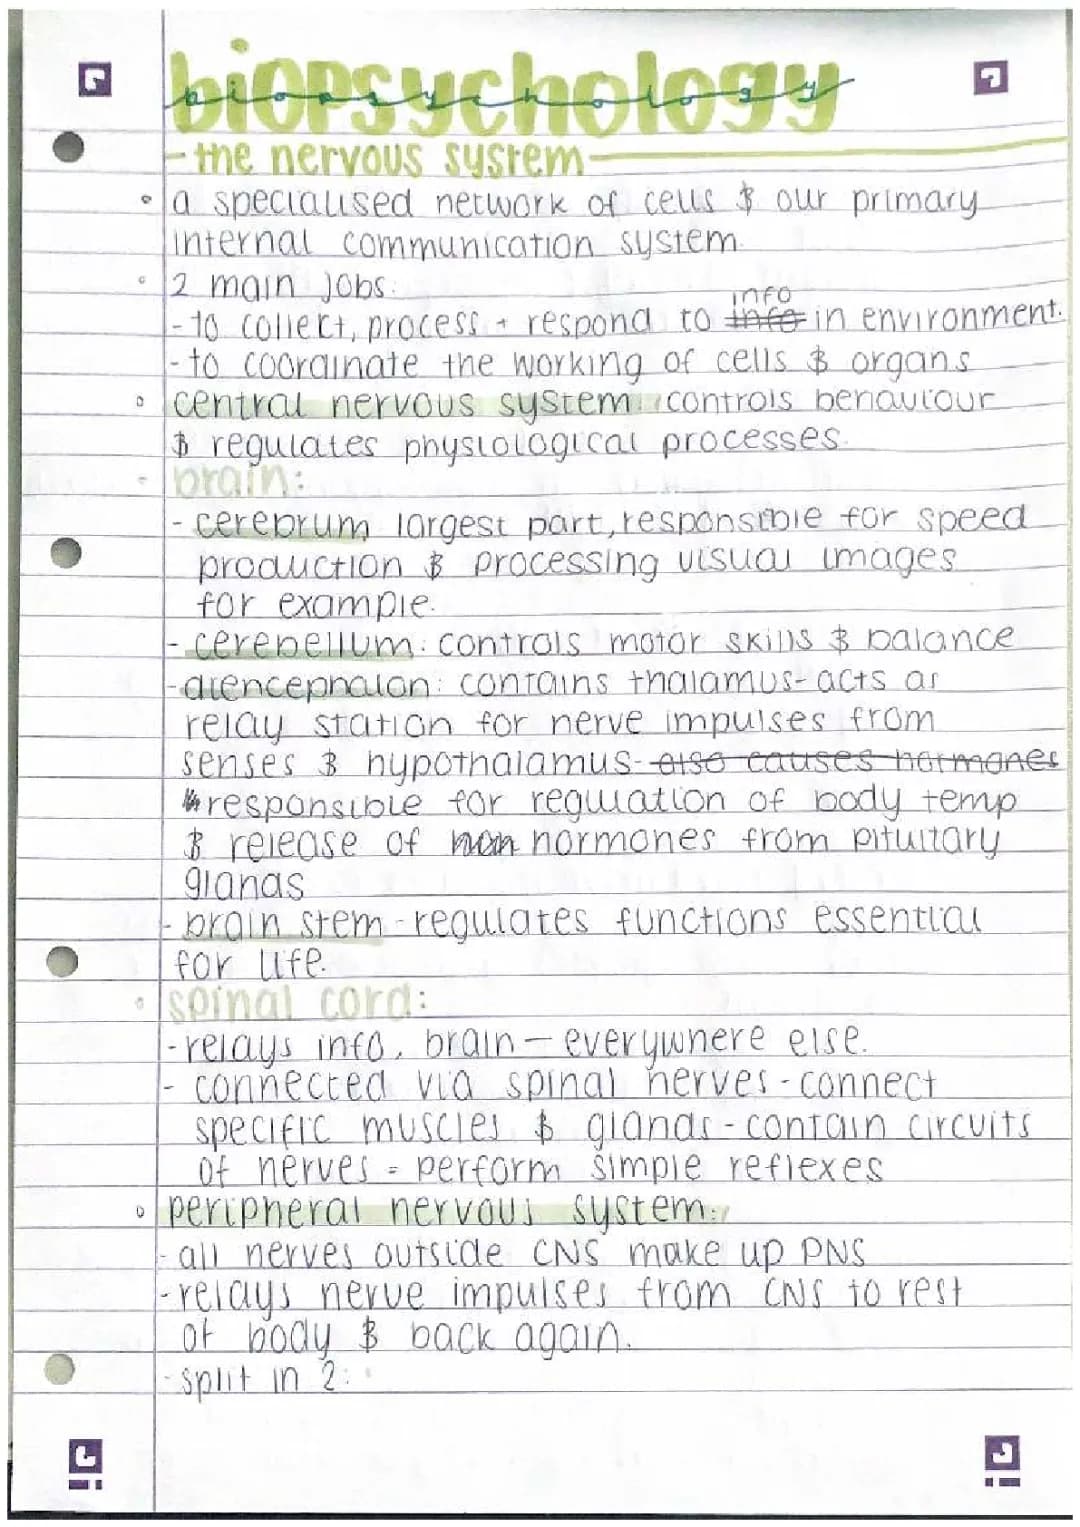 biopsychology
- the nervous system
• a specialised network of cells & our primary
internal communication system.
• 2 main jobs:
info
- to collect, process + respond to info in environment.
- to coordinate the working of cells & organs
• central nervous system: controls behaviour
& regulates physiological processes.
• brain:
- cerebrum largest part, responsible for speed
production & processing visual images
for example.
- cerebellum: controls motor skills & balance
- diencephalon: contains thalamus- acts as
relay station for nerve impulses from
senses & hypothalamus- also causes hormones
responsible for regulation of body temp
& release of hormones from pituitary
glands
- brain stem - regulates functions essential
for life.
• spinal cord:
- relays info, brain — everywhere else.
- connected via spinal nerves - connect
specific muscles & glands - contain circuits
of nerves = perform simple reflexes
• peripheral nervous system:
- all nerves outside CNS make up PNS
- relays nerve impulses from CNS to rest
of body & back again.
- split in 2: